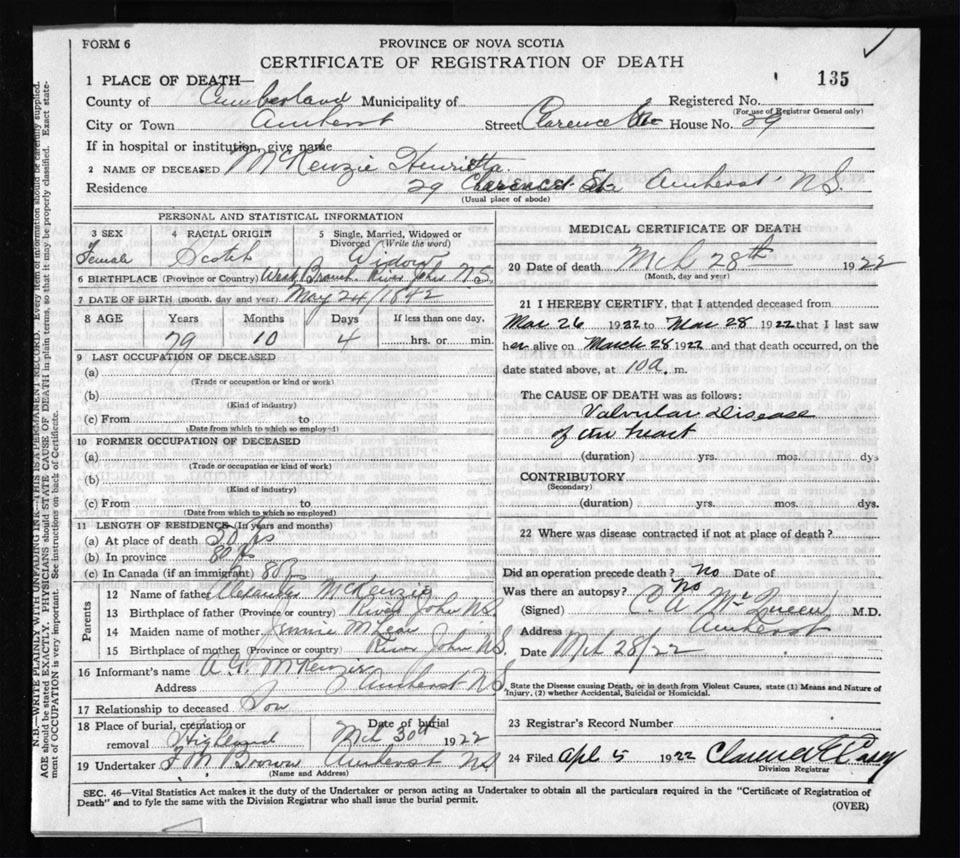 FORM 6
PROVINCE OF NOVA SCOTIA
CERTIFICATE OF REGISTRATION OF DEATH
135
1 PLACE OF DEATH—
County of Cumberland Municipality of Registered No.
(For use of Registrar General only)
City or Town Amherst Street Clarence House No. 29
If in hospital or institution, give name
2 NAME OF DECEASED McKenzie Henrietta
Residence 29 Clarence St Amherst N.S.
(Usual place of abode)
PERSONAL AND STATISTICAL INFORMATION
3 SEX Female
4 RACIAL ORIGIN Scotch
5 Single, Married, Widowed or Divorced (Write the word) Widow
6 BIRTHPLACE (Province or Country) West Branch River John N.S.
7 DATE OF BIRTH (month, day and year) May 24/1842
8 AGE Years Months Days If less than one day,
79 10 4 hrs. or min.
9 LAST OCCUPATION OF DECEASED
(a)
(Trade or occupation or kind or work)
(b)
(Kind of industry)
(c) From to
(Date from which to which so employed)
10 FORMER OCCUPATION OF DECEASED
(a)
(Trade or occupation or kind of work)
(b)
(Kind of industry)
(c) From to
(Date from which to which so employed)
11 LENGTH OF RESIDENCE (In years and months)
(a) At place of death 50 yrs
(b) In province 80 yrs
(c) In Canada (if an immigrant) 80 yrs
Parents
12 Name of father Alexander McKenzie
13 Birthplace of father (Province or country) River John N.S.
14 Maiden name of mother Jennie McLean
15 Birthplace of mother (Province or country) River John N.S.
16 Informant's name A. G. McKenzie
Address Amherst N.S.
17 Relationship to deceased Son
18 Place of burial, cremation or removal Highland
Date of burial Mch 30th 1922
19 Undertaker F M Brown Amherst N.S.
(Name and Address)
MEDICAL CERTIFICATE OF DEATH
20 Date of death Mch 28th 1922
(Month, day and year)
21 I HEREBY CERTIFY, that I attended deceased from
Mar 26 1922 to Mar 28 1922 that I last saw
her alive on March 28 1922 and that death occurred, on the
date stated above, at 10 a. m.
The CAUSE OF DEATH was as follows:
Valvular Disease
of the heart
(duration) yrs. mos. dys
CONTRIBUTORY
(Secondary)
(duration) yrs. mos. dys.
22 Where was disease contracted if not at place of death?
Did an operation precede death? No Date of
Was there an autopsy? No
(Signed) C. A. McQueen M.D.
Address Amherst
Date Mch 28/22
State the Disease causing Death, or in death from Violent Causes, state (1) Means and Nature of
Injury, (2) whether Accidental, Suicidal or Homicidal.
23 Registrar's Record Number
24 Filed Apl 5 1922 Clarence Casey
Division Registrar
SEC. 46—Vital Statistics Act makes it the duty of the Undertaker or person acting as Undertaker to obtain all the particulars required in the "Certificate of Registration of
Death" and to fyle the same with the Division Registrar who shall issue the burial permit.
(OVER)
N.B.—WRITE PLAINLY WITH UNFADING INK—THIS IS A PERMANENT RECORD. Every item of information should be carefully supplied.
AGE should be stated EXACTLY. PHYSICIANS should STATE CAUSE OF DEATH in plain terms, so that it may be properly classified. Exact state-
ment of OCCUPATION is very important. See instructions on back of Certificate.